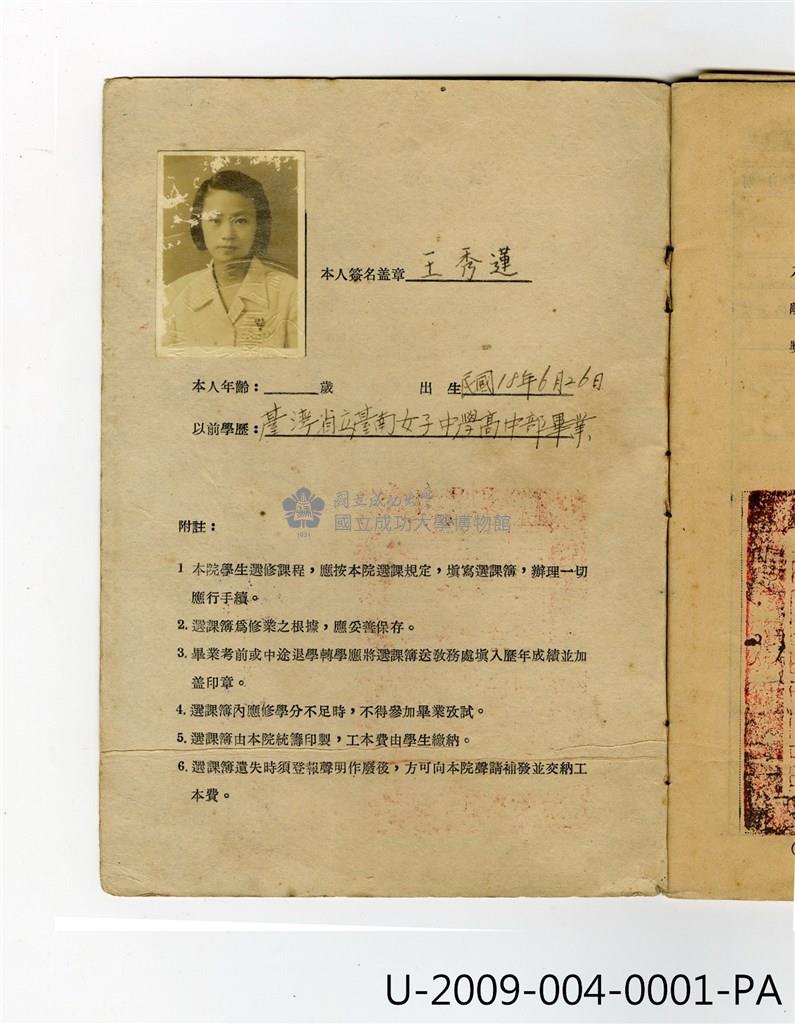 本人簽名盖章 王秀蓮
本人年齡：　　歲　出生 民國18年6月26日
以前學歷：臺灣省立臺南女子中學高中部畢業
國立成功大學
國立成功大學博物館
1931
附註：
1 本院學生選修課程，應按本院選課規定，塡寫選課簿，辦理一切
應行手續。
2. 選課簿爲修業之根據，應妥善保存。
3. 畢業考前或中途退學轉學應將選課簿送敎務處塡入歷年成績並加
盖印章。
4. 選課簿內應修學分不足時，不得參加畢業攷試。
5. 選課簿由本院統籌印製，工本費由學生繳納。
6. 選課簿遺失時須登報聲明作廢後，方可向本院聲請補發並交納工
本費。
U-2009-004-0001-PA